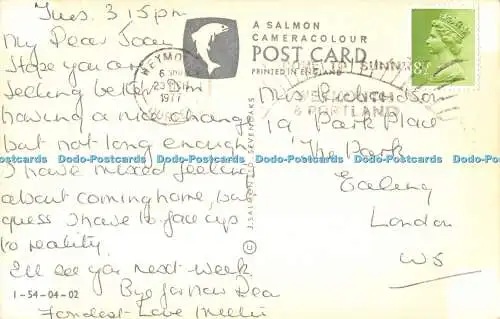 Tues. 3 15pm
My Dear Joan
Hope you are
feeling better. Am
having a nice change
but not long enough
I have mixed feelings
about coming home, but
guess I have to face up
to reality.
I'll see you next week.
Bye for now Dea
Fondest Love
1-54-04-02
A SALMON
CAMERACOLOUR
POST CARD
PRINTED IN ENGLAND
J. SALMON LTD. SEVENOAKS
©
WEYMOUTH
1977
SUNNY
WEYMOUTH
& PORTLAND
8½
P
Mrs Richardson
19 Park Place
The Park
Ealing
London
W5
Dodo-Postcards Dodo-Postcards Dodo-Postcards Dodo-Postcards Dodo-Postcards Dodo-Postcards Dodo-Postcards